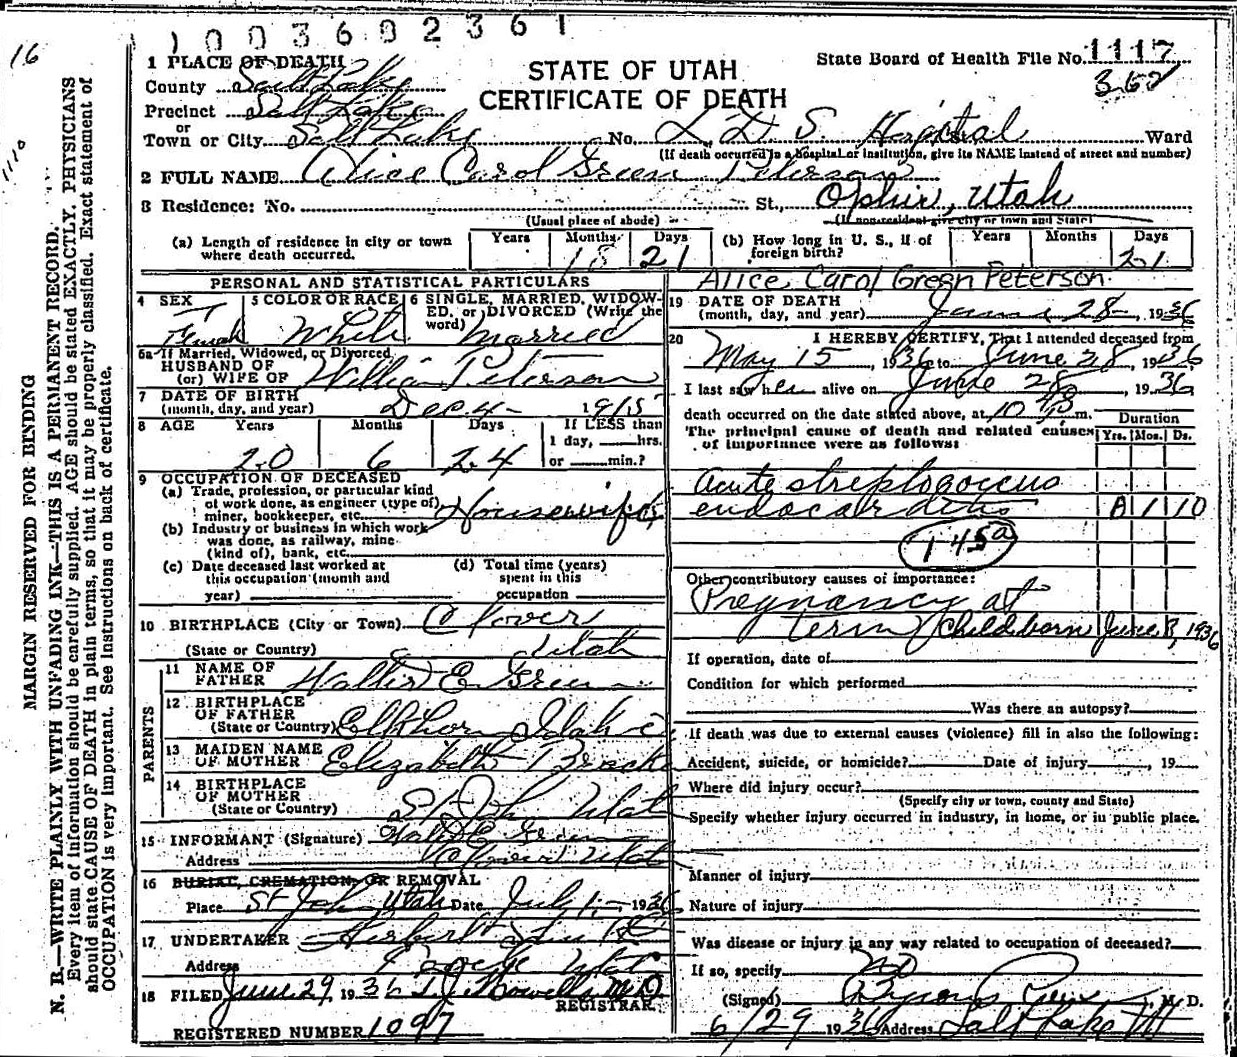 1003602361
16
1110
State Board of Health File No. 1117
360
STATE OF UTAH
CERTIFICATE OF DEATH
1 PLACE OF DEATH
County Salt Lake
Precinct Salt Lake
or
Town or City Salt Lake No. L.D.S. Hospital St. Ward
(If death occurred in a hospital or institution, give its NAME instead of street and number)
2 FULL NAME Alice Carol Green Peterson
3 Residence: No. St., Ophir, Utah
(Usual place of abode) (If non-resident give city or town and State)
(a) Length of residence in city or town where death occurred. Years Months 18 Days 21
(b) How long in U. S., if of foreign birth? Years Months Days 21
PERSONAL AND STATISTICAL PARTICULARS
4 SEX Female
5 COLOR OR RACE White
6 SINGLE, MARRIED, WIDOWED, or DIVORCED (Write the word) Married
6a If Married, Widowed, or Divorced
HUSBAND OF
(or) WIFE OF William Peterson
7 DATE OF BIRTH
(month, day, and year) Dec 4 - 1915
8 AGE Years 20 Months 6 Days 24 If LESS than 1 day, hrs. or min.?
9 OCCUPATION OF DECEASED
(a) Trade, profession, or particular kind of work done, as engineer (type of) miner, bookkeeper, etc. Housewife
(b) Industry or business in which work was done, as railway, mine (kind of), bank, etc.
(c) Date deceased last worked at this occupation (month and year)
(d) Total time (years) spent in this occupation
10 BIRTHPLACE (City or Town) Clover
(State or Country) Utah
PARENTS
11 NAME OF FATHER Walter E Green
12 BIRTHPLACE OF FATHER
(State or Country) Elkhorn Idaho
13 MAIDEN NAME OF MOTHER Elizabeth
14 BIRTHPLACE OF MOTHER
(State or Country) St John Utah
15 INFORMANT (Signature) Walter E Green
Address Clover Utah
16 BURIAL, CREMATION, OR REMOVAL
Place St John Utah Date July 1 - 1936
17 UNDERTAKER Herbert
Address Tooele Utah
18 FILED June 29 1936 T.J. Howells M.D.
REGISTRAR.
REGISTERED NUMBER 1097
Alice Carol Green Peterson
19 DATE OF DEATH
(month, day, and year) June 28 - , 1936
20 I HEREBY CERTIFY, That I attended deceased from
May 15, 1936 to June 28, 1936
I last saw her alive on June 28, 1936
death occurred on the date stated above, at 10 m.
The principal cause of death and related causes of importance were as follows:
Duration
Yrs. Mos. Ds.
Acute streptococcus
endocarditis 1 10
145a
Other contributory causes of importance:
Pregnancy at
term (Child born June 8, 1936
If operation, date of
Condition for which performed
Was there an autopsy?
If death was due to external causes (violence) fill in also the following:
Accident, suicide, or homicide? Date of injury , 19
Where did injury occur?
(Specify city or town, county and State)
Specify whether injury occurred in industry, in home, or in public place.
Manner of injury
Nature of injury
Was disease or injury in any way related to occupation of deceased?
If so, specify No
(Signed) M. D.
6/29 1936 Address Salt Lake Ut
MARGIN RESERVED FOR BINDING
N. B.—WRITE PLAINLY WITH UNFADING INK—THIS IS A PERMANENT RECORD.
Every item of information should be carefully supplied. AGE should be stated EXACTLY. PHYSICIANS
should state CAUSE OF DEATH in plain terms, so that it may be properly classified. Exact statement of
OCCUPATION is very important. See instructions on back of certificate.